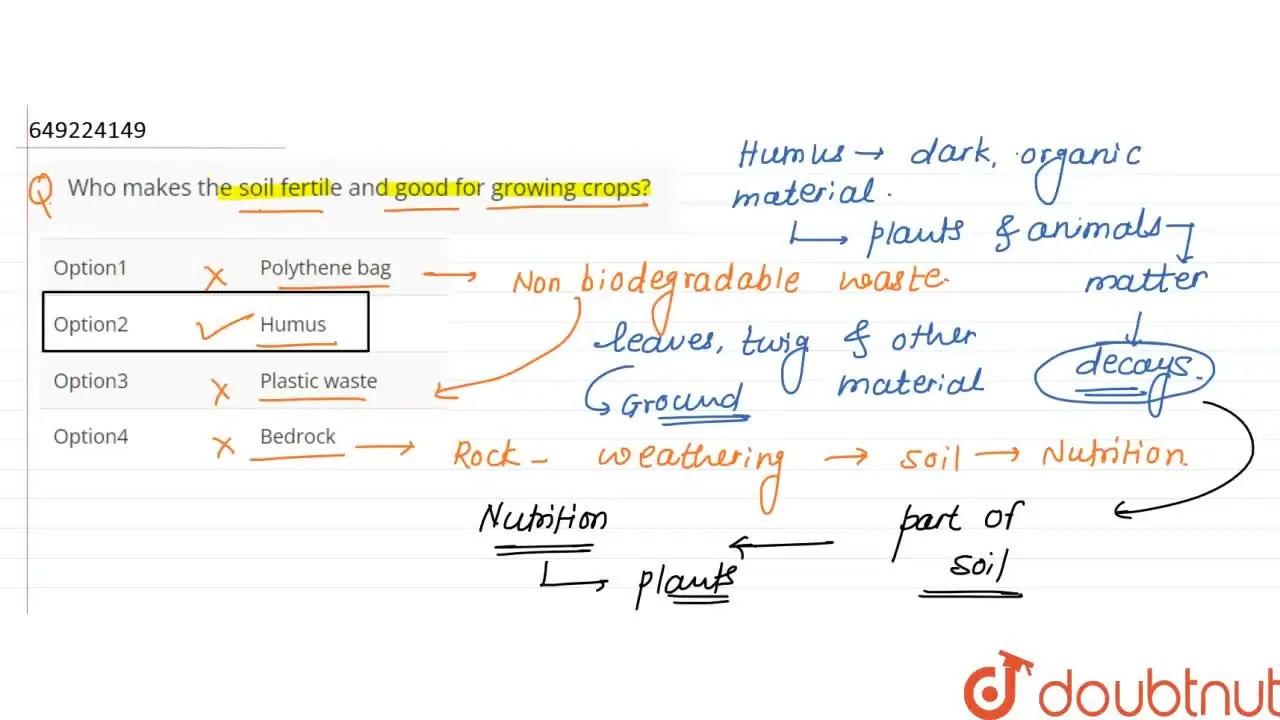 649224149
Q Who makes the soil fertile and good for growing crops?
Option1 x Polythene bag → Non biodegradable waste.
Option2 ✓ Humus
Option3 x Plastic waste
Option4 x Bedrock → Rock - weathering → soil → Nutrition
Humus → dark, organic
material.
plants & animals
matter
decays.
leaves, twig & other
material
Ground
part of
soil
Nutrition
plants
doubtnut